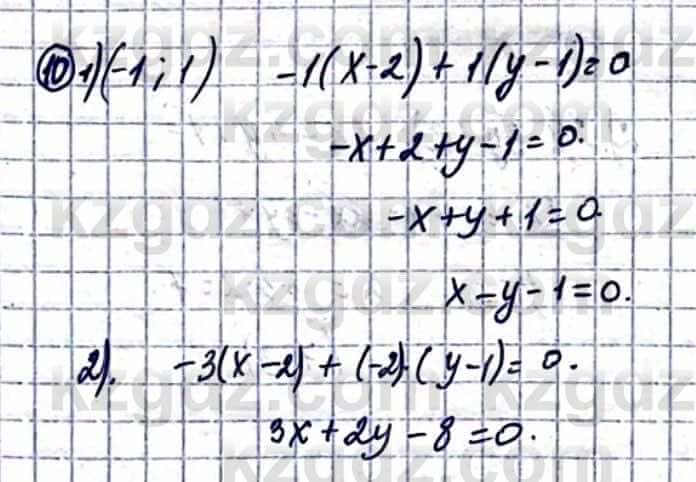 10 1) (-1; 1) -1(x-2) + 1(y-1) = 0
-x+2+y-1=0.
-x+y+1=0
x-y-1=0.
2). -3(x-2) + (-2)·(y-1) = 0.
3x+2y-8=0.
kzgdz.com